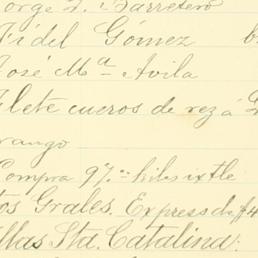 Jorge L. Barretero
Fidel Gómez
José Mª Avila
Flete cueros de rez á D
rango
Compra 97 kilos ixtle
tos Grales. Express de f4
llas Sta. Catalina: